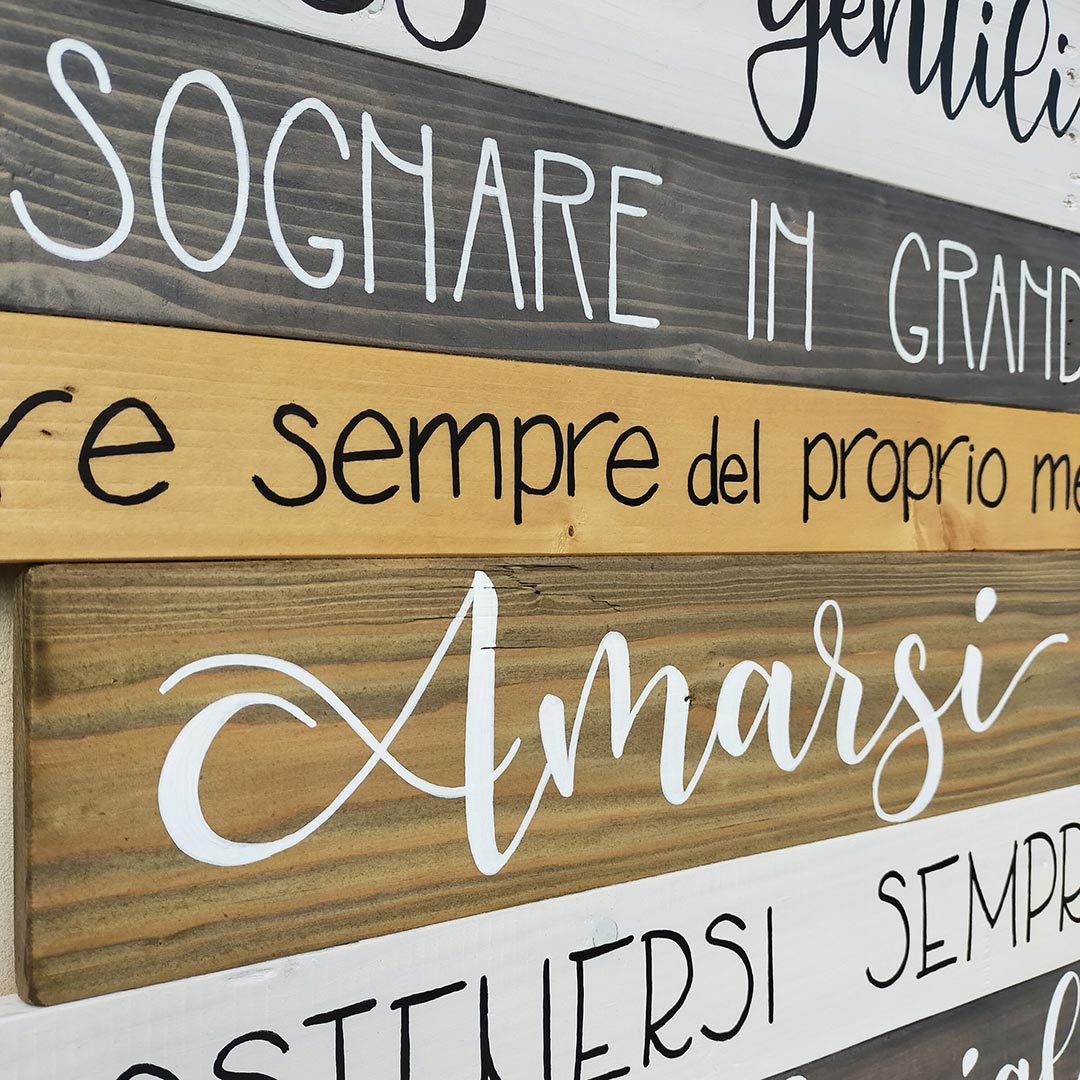 gentili
SOGNARE IN GRAND
re sempre del proprio me
Amarsi
OSTENERSI SEMPR